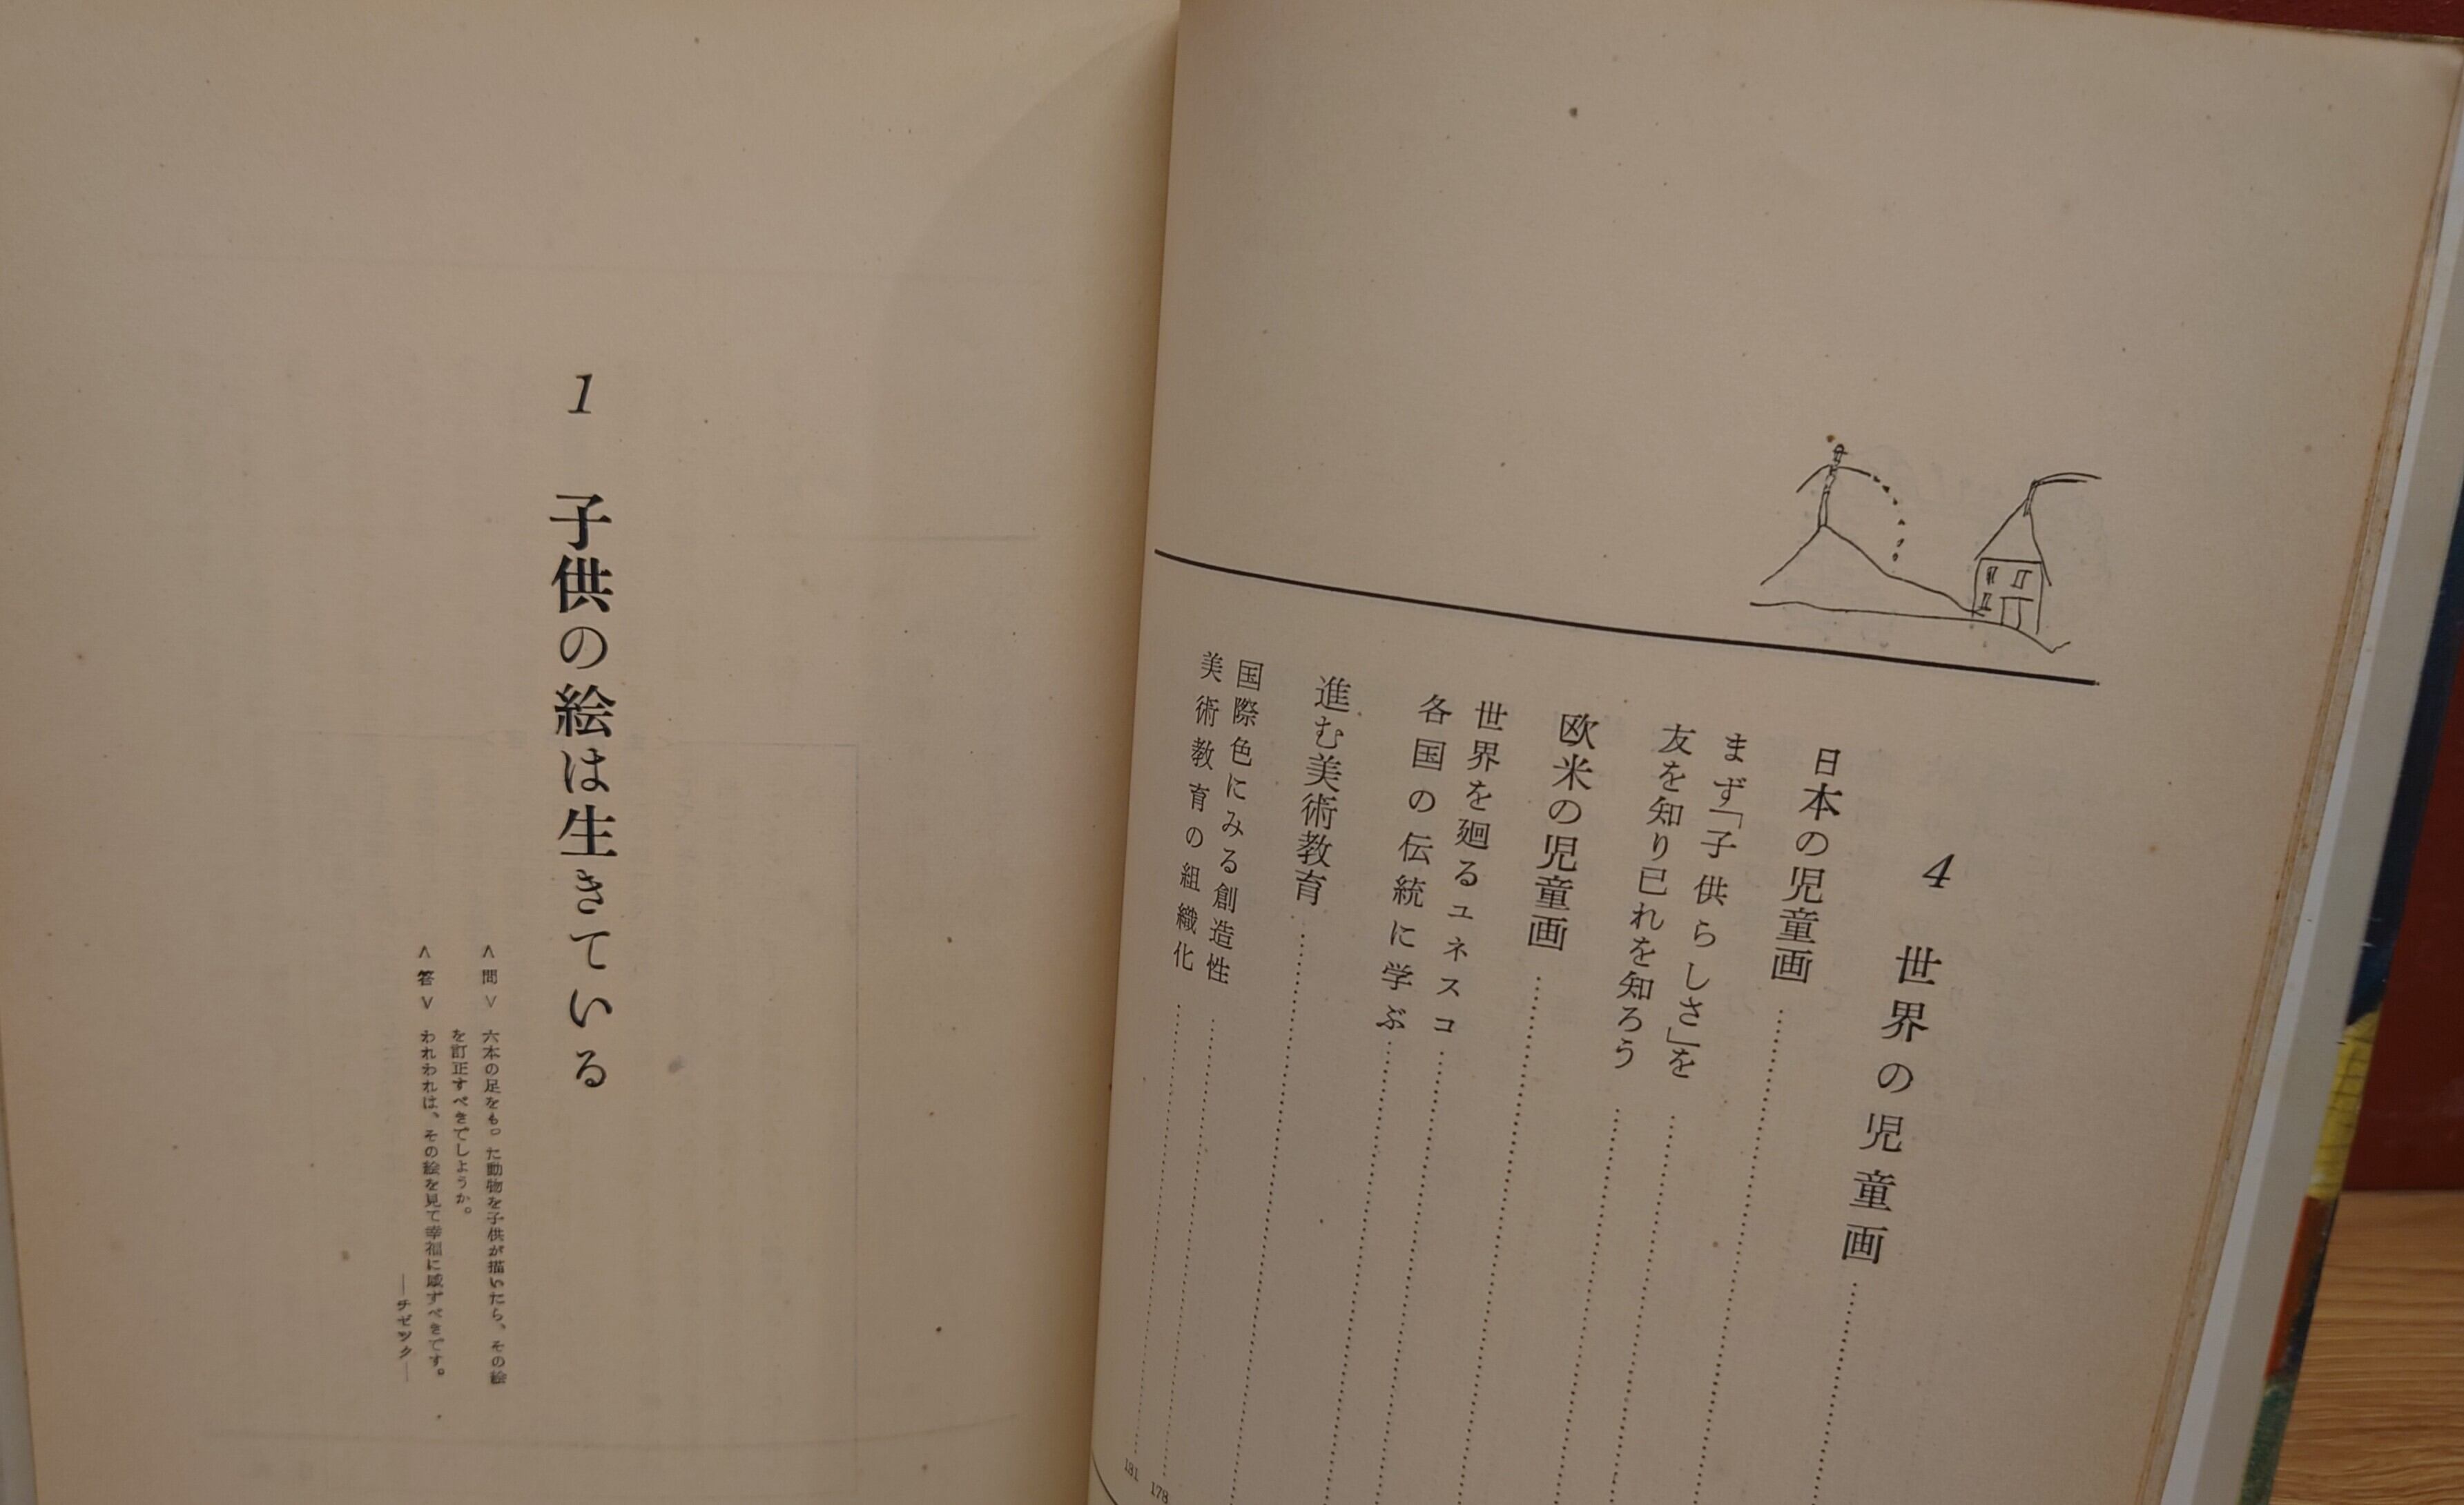 4 世界の児童画
日本の児童画
まず「子供らしさ」を
友を知り已れを知ろう
欧米の児童画
世界を廻るユネスコ
各国の伝統に学ぶ
進む美術教育
国際色にみる創造性 178
美術教育の組織化 181
1 子供の絵は生きている
<問> 六本の足をもった動物を子供が描いたら、その絵
を訂正すべきでしょうか。
<答> われわれは、その絵を見て幸福に感ずべきです。
―チゼック―